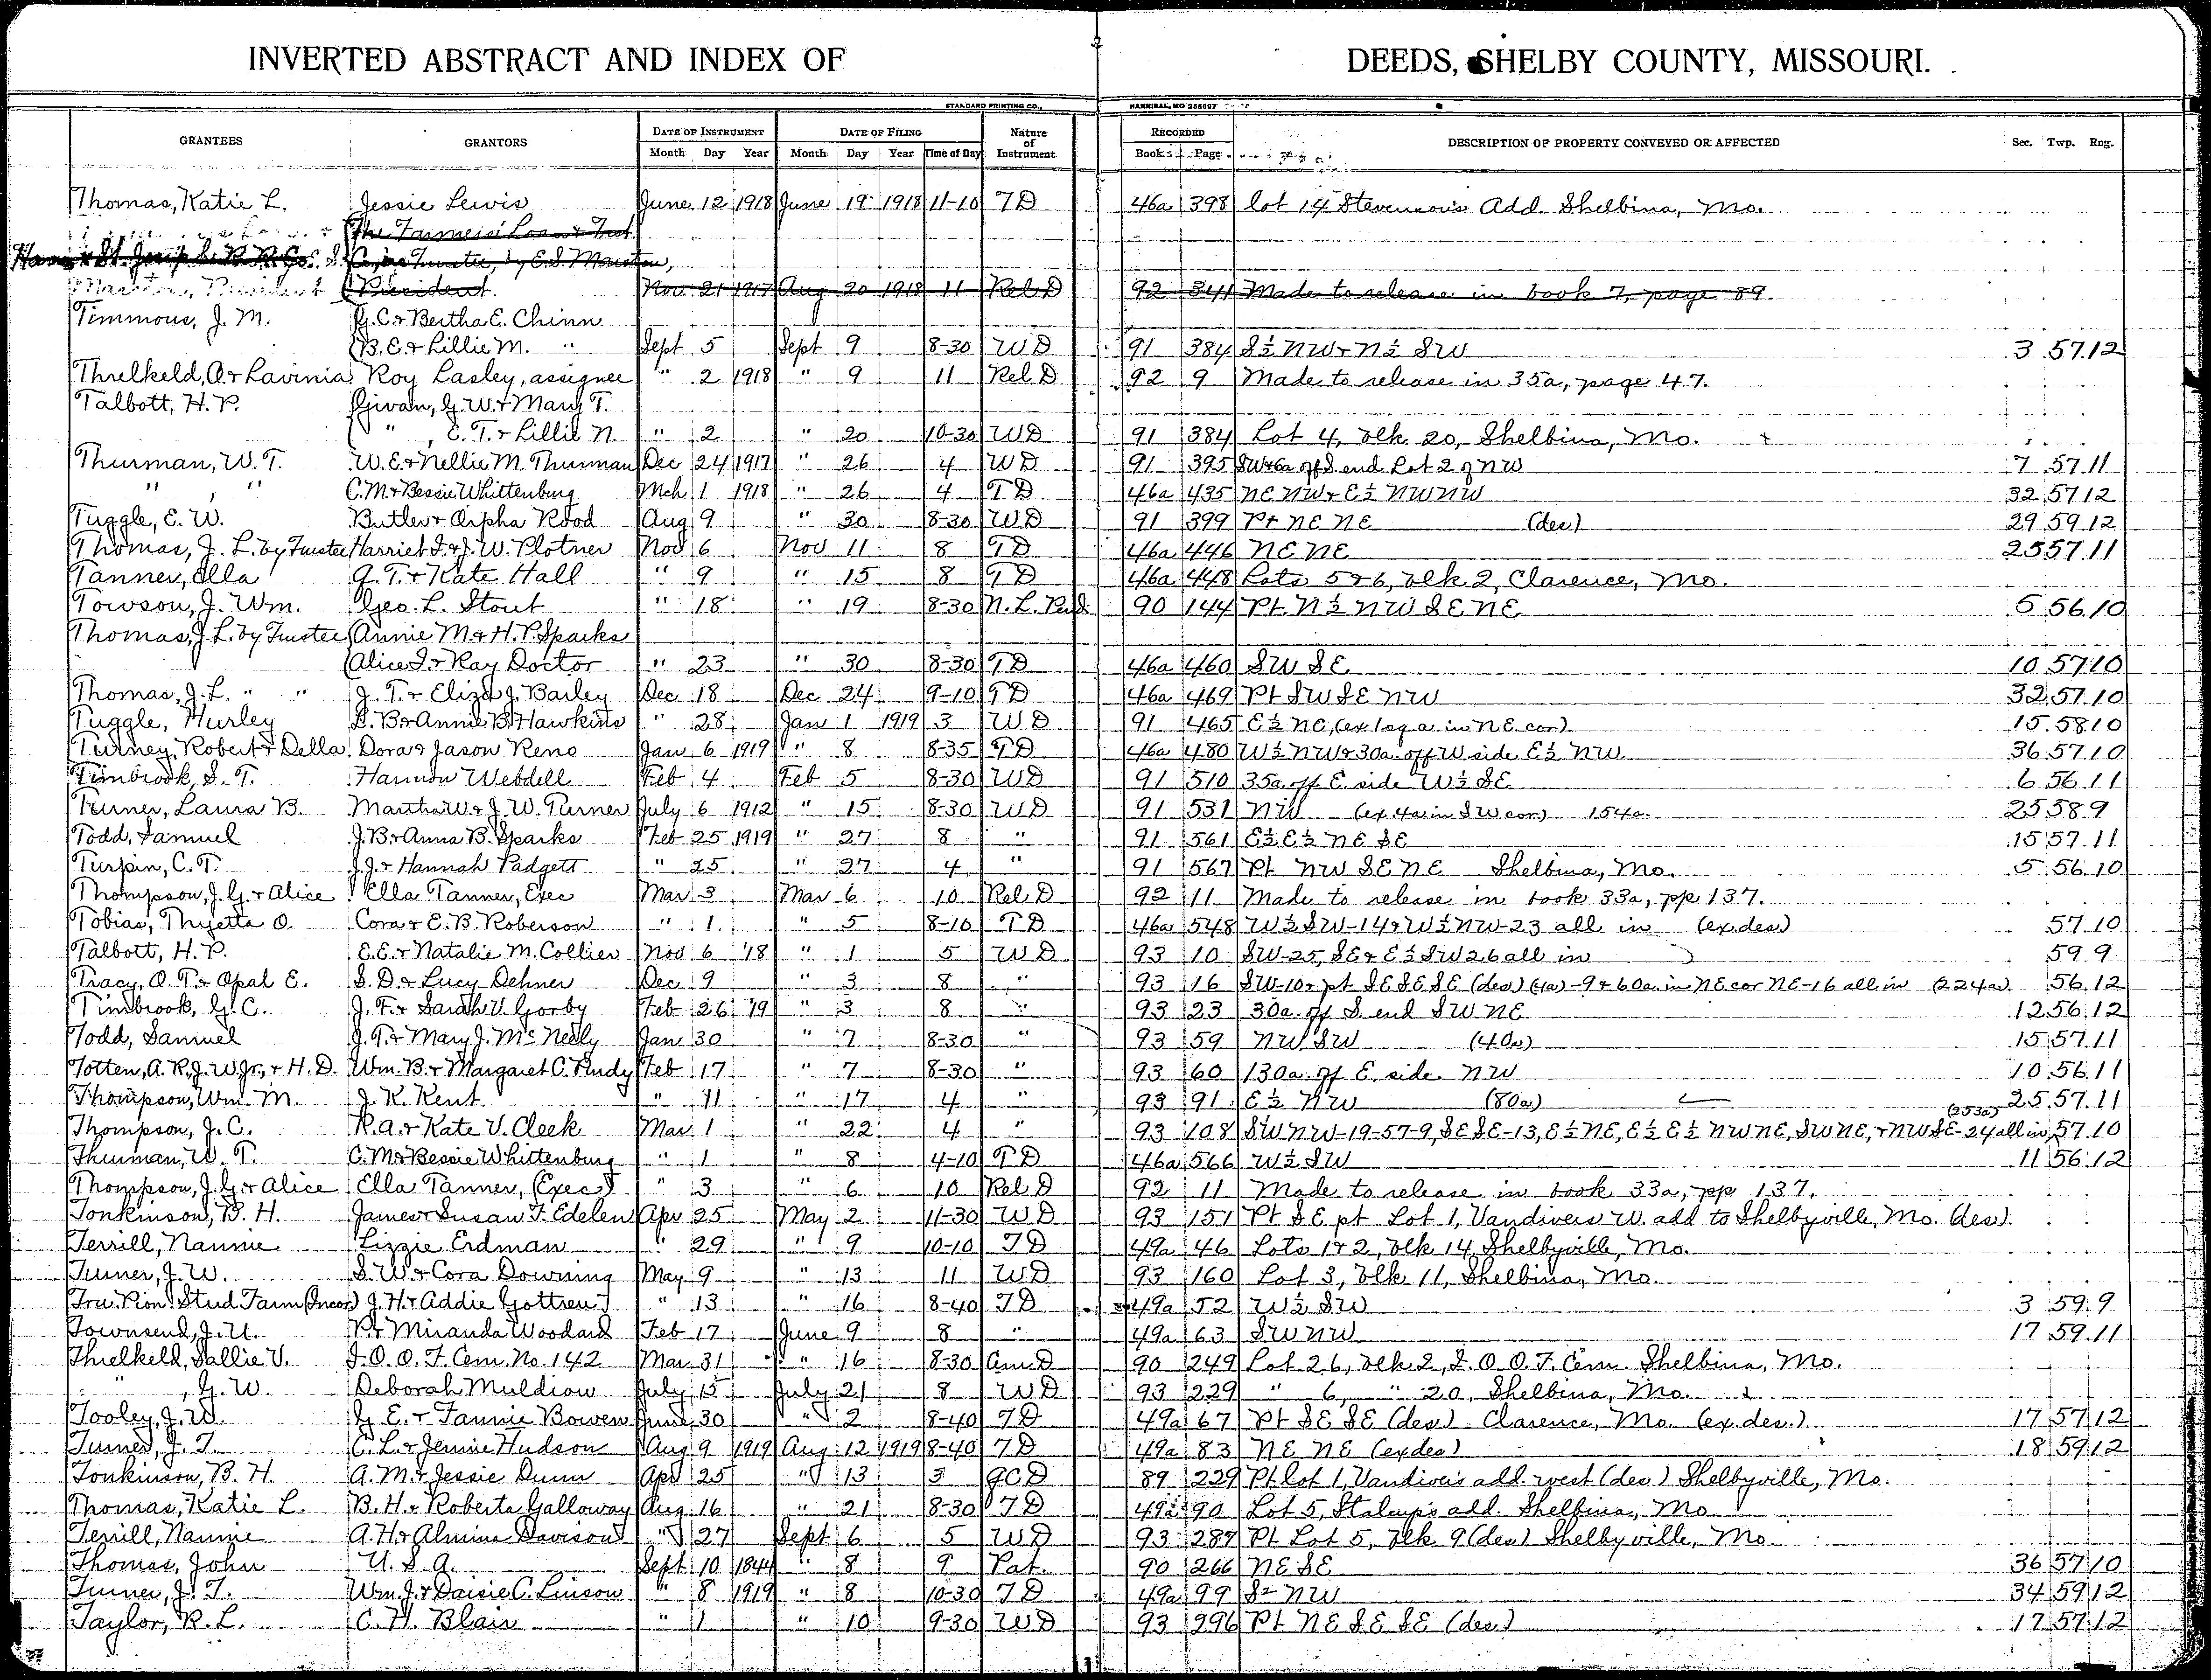 INVERTED ABSTRACT AND INDEX OF DEEDS, SHELBY COUNTY, MISSOURI.
STANDARD PRINTING CO., HANNIBAL, MO 256697
GRANTEES GRANTORS DATE OF INSTRUMENT DATE OF FILING Nature of Instrument RECORDED DESCRIPTION OF PROPERTY CONVEYED OR AFFECTED Sec. Twp. Rng.
Month Day Year Month Day Year Time of Day Book Page
Thomas, Katie L. Jessie Lewis June 12 1918 June 19 1918 11-10 TD 46a 398 Lot 14 Stevenson's Add. Shelbina, Mo.
The Farmers' Loan & Trust
Han & St. Joseph R. R. Co. Co., as Trustee, by E. S. Marston,
Marston, President President. Nov 21 1917 Aug 20 1918 11 Rel D 92 341 Made to release in book 7, page 89.
Timmons, J. M. G. C. & Bertha E. Chinn
B. E. & Lillie M. " Sept 5 Sept 9 8-30 WD 91 384 S½ NW & N½ SW 3 57 12
Threlkeld, O. & Lavinia Roy Lasley, assignee " 2 1918 " 9 11 Rel D 92 9 Made to release in 35a, page 47.
Talbott, H. P. Givan, G. W. & Mary T.
" , E. T. & Lillie N. " 2 " 20 10-30 WD 91 384 Lot 4, blk 20, Shelbina, Mo.
Thurman, W. T. W. E. & Nellie M. Thurman Dec 24 1917 " 26 4 WD 91 395 SW & 6a off S end Lot 2 of NW 7 57 11
" , " C. M. & Bessie Whittenburg Mch 1 1918 " 26 4 TD 46a 435 NE NW & E½ NW NW 32 57 12
Tuggle, E. W. Butler & Orpha Rood Aug 9 " 30 8-30 WD 91 399 Pt NE NE (des) 29 59 12
Thomas, J. L. by Trustee Harriet I. & J. W. Plotner Nov 6 Nov 11 8 TD 46a 446 NE NE 25 57 11
Tanner, Ella G. T. & Kate Hall " 9 " 15 8 TD 46a 448 Lots 5 & 6, blk 2, Clarence, Mo.
Towson, J. Wm. Geo. L. Stout " 18 " 19 8-30 N. L. P. 90 144 Pt N½ NW SE NE 5 56 10
Thomas, J. L. by Trustee Annie M. & H. P. Sparks
Alice I. & Ray Doctor " 23 " 30 8-30 TD 46a 460 SW SE 10 57 10
Thomas, J. L. " " J. T. & Eliza J. Bailey Dec 18 Dec 24 9-10 TD 46a 469 Pt SW SE NW 32 57 10
Tuggle, Hurley L. B. & Annie B. Hawkins " 28 Jan 1 1919 3 WD 91 465 E½ NE, (ex 1 sq a. in NE cor) 15 58 10
Turney Robert & Della Dora & Jason Reno Jan 6 1919 " 8 8-35 TD 46a 480 W½ NW & 30a. off W side E½ NW 36 57 10
Timbrook, S. T. Hannon Weddell Feb 4 Feb 5 8-30 WD 91 510 35a. off E. side W½ SE 6 56 11
Turner, Laura B. Martha W. & J. W. Turner July 6 1912 " 15 8-30 WD 91 531 NW (ex. 4a in SW cor) 154a. 25 58 9
Todd, Samuel J. B. & Anna B. Sparks Feb 25 1919 " 27 8 " 91 561 E½ E½ NE SE 15 57 11
Turpin, C. T. J. J. & Hannah Padgett " 25 " 27 4 " 91 567 Pt NW SE NE Shelbina, Mo. 5 56 10
Thompson, J. G. & Alice Ella Tanner, Exec Mar 3 Mar 6 10 Rel D 92 11 Made to release in book 33a, pp 137.
Tobias, Thyetta O. Cora & E. B. Roberson " 1 " 5 8-10 TD 46a 548 W½ SW-14 & W½ NW-23 all in (ex. des) 57 10
Talbott, H. P. E. E. & Natalie M. Collier Nov 6 '18 " 1 5 WD 93 10 SW-25, SE & E½ SW 26 all in 59 9
Tracy, O. T. & Opal E. S. D. & Lucy Dehner Dec 9 " 3 8 " 93 16 SW-10 & pt SE SE SE (des) (4a)-9 & 60a. in NE cor NE-16 all in (224a) 56 12
Timbrook, G. C. J. F. & Sarah V. Gorby Feb 26 '19 " 3 8 " 93 23 30a. off S end SW NE 12 56 12
Todd, Samuel J. T. & Mary J. McNeely Jan 30 " 7 8-30 " 93 59 NW SW (40a) 15 57 11
Totten, A. R., J. W. Jr., & H. D. Wm. B. & Margaret C. Purdy Feb 17 " 7 8-30 " 93 60 130a. off E. side NW 10 56 11
Thompson, Wm. M. J. K. Kent " 11 " 17 4 " 93 91 E½ NW (80a) 25 57 11
Thompson, J. C. R. A. & Kate V. Cleek Mar 1 " 22 4 " 93 108 SW NW-19-57-9, SE SE-13, E½ NE, E½ E½ NW NE, SW NE, & NW SE-24 all in (253a) 57 10
Thurman, W. T. C. M. & Bessie Whittenburg " 1 " 8 4-10 TD 46a 566 W½ SW 11 56 12
Thompson, J. G. & Alice Ella Tanner, (Exec) " 3 " 6 10 Rel D 92 11 Made to release in book 33a, pp 137.
Tonkinson, B. H. James & Susan F. Edelen Apr 25 May 2 11-30 WD 93 151 Pt SE pt Lot 1, Vandivers W. add to Shelbyville, Mo. (des).
Terrill, Nannie Lizzie Erdman " 29 " 9 10-10 TD 49a 46 Lots 1 & 2, blk 14, Shelbyville, Mo.
Turner, J. W. S. W. & Cora Downing May 9 " 13 11 WD 93 160 Lot 3, blk 11, Shelbina, Mo.
Tru Pion Stud Farm (Incor) J. H. & Addie Gottren " 13 " 16 8-40 TD 49a 52 W½ SW 3 59 9
Townsend, J. U. P. & Miranda Woodard Feb 17 June 9 8 " 49a 63 SW NW 17 59 11
Threlkeld, Sallie V. I. O. O. F. Cem. No. 142 Mar 31 " 16 8-30 Cem D 90 249 Lot 26, blk 2, I. O. O. F. Cem. Shelbina, Mo.
" , G. W. Deborah Muldrow July 15 July 21 8 WD 93 229 " 6, " 20, Shelbina, Mo.
Tooley, J. W. G. E. & Fannie Bowen June 30 " 2 8-40 TD 49a 67 Pt SE SE (des) Clarence, Mo. (ex. des.) 17 57 12
Turner, J. T. C. L. & Jennie Hudson Aug 9 1919 Aug 12 1919 8-40 TD 49a 83 NE NE (ex des) 18 59 12
Tonkinson, B. H. A. M. & Jessie Dunn Apr 25 " 13 3 QCD 89 229 Pt lot 1, Vandiver's add. west (des.) Shelbyville, Mo.
Thomas, Katie L. B. H. & Roberta Galloway Aug 16 " 21 8-30 TD 49a 90 Lot 5, Stalcup's add. Shelbina, Mo
Terrill, Nannie A. H. & Almina Davison " 27 Sept 6 5 WD 93 287 Pt Lot 5, blk 9 (des) Shelbyville, Mo.
Thomas, John U. S. A. Sept 10 1844 " 8 9 Pat. 90 266 NE SE 36 57 10
Turner, J. T. Wm. J. & Daisie C. Linson " 8 1919 " 8 10-30 TD 49a 99 S½ NW 34 59 12
Taylor, R. L. C. H. Blair " 1 " 10 9-30 WD 93 296 Pt NE SE SE (des) 17 57 12